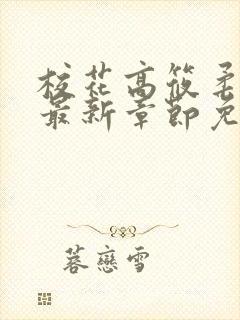 校花高筱柔
最新章節免
蓉戀雪